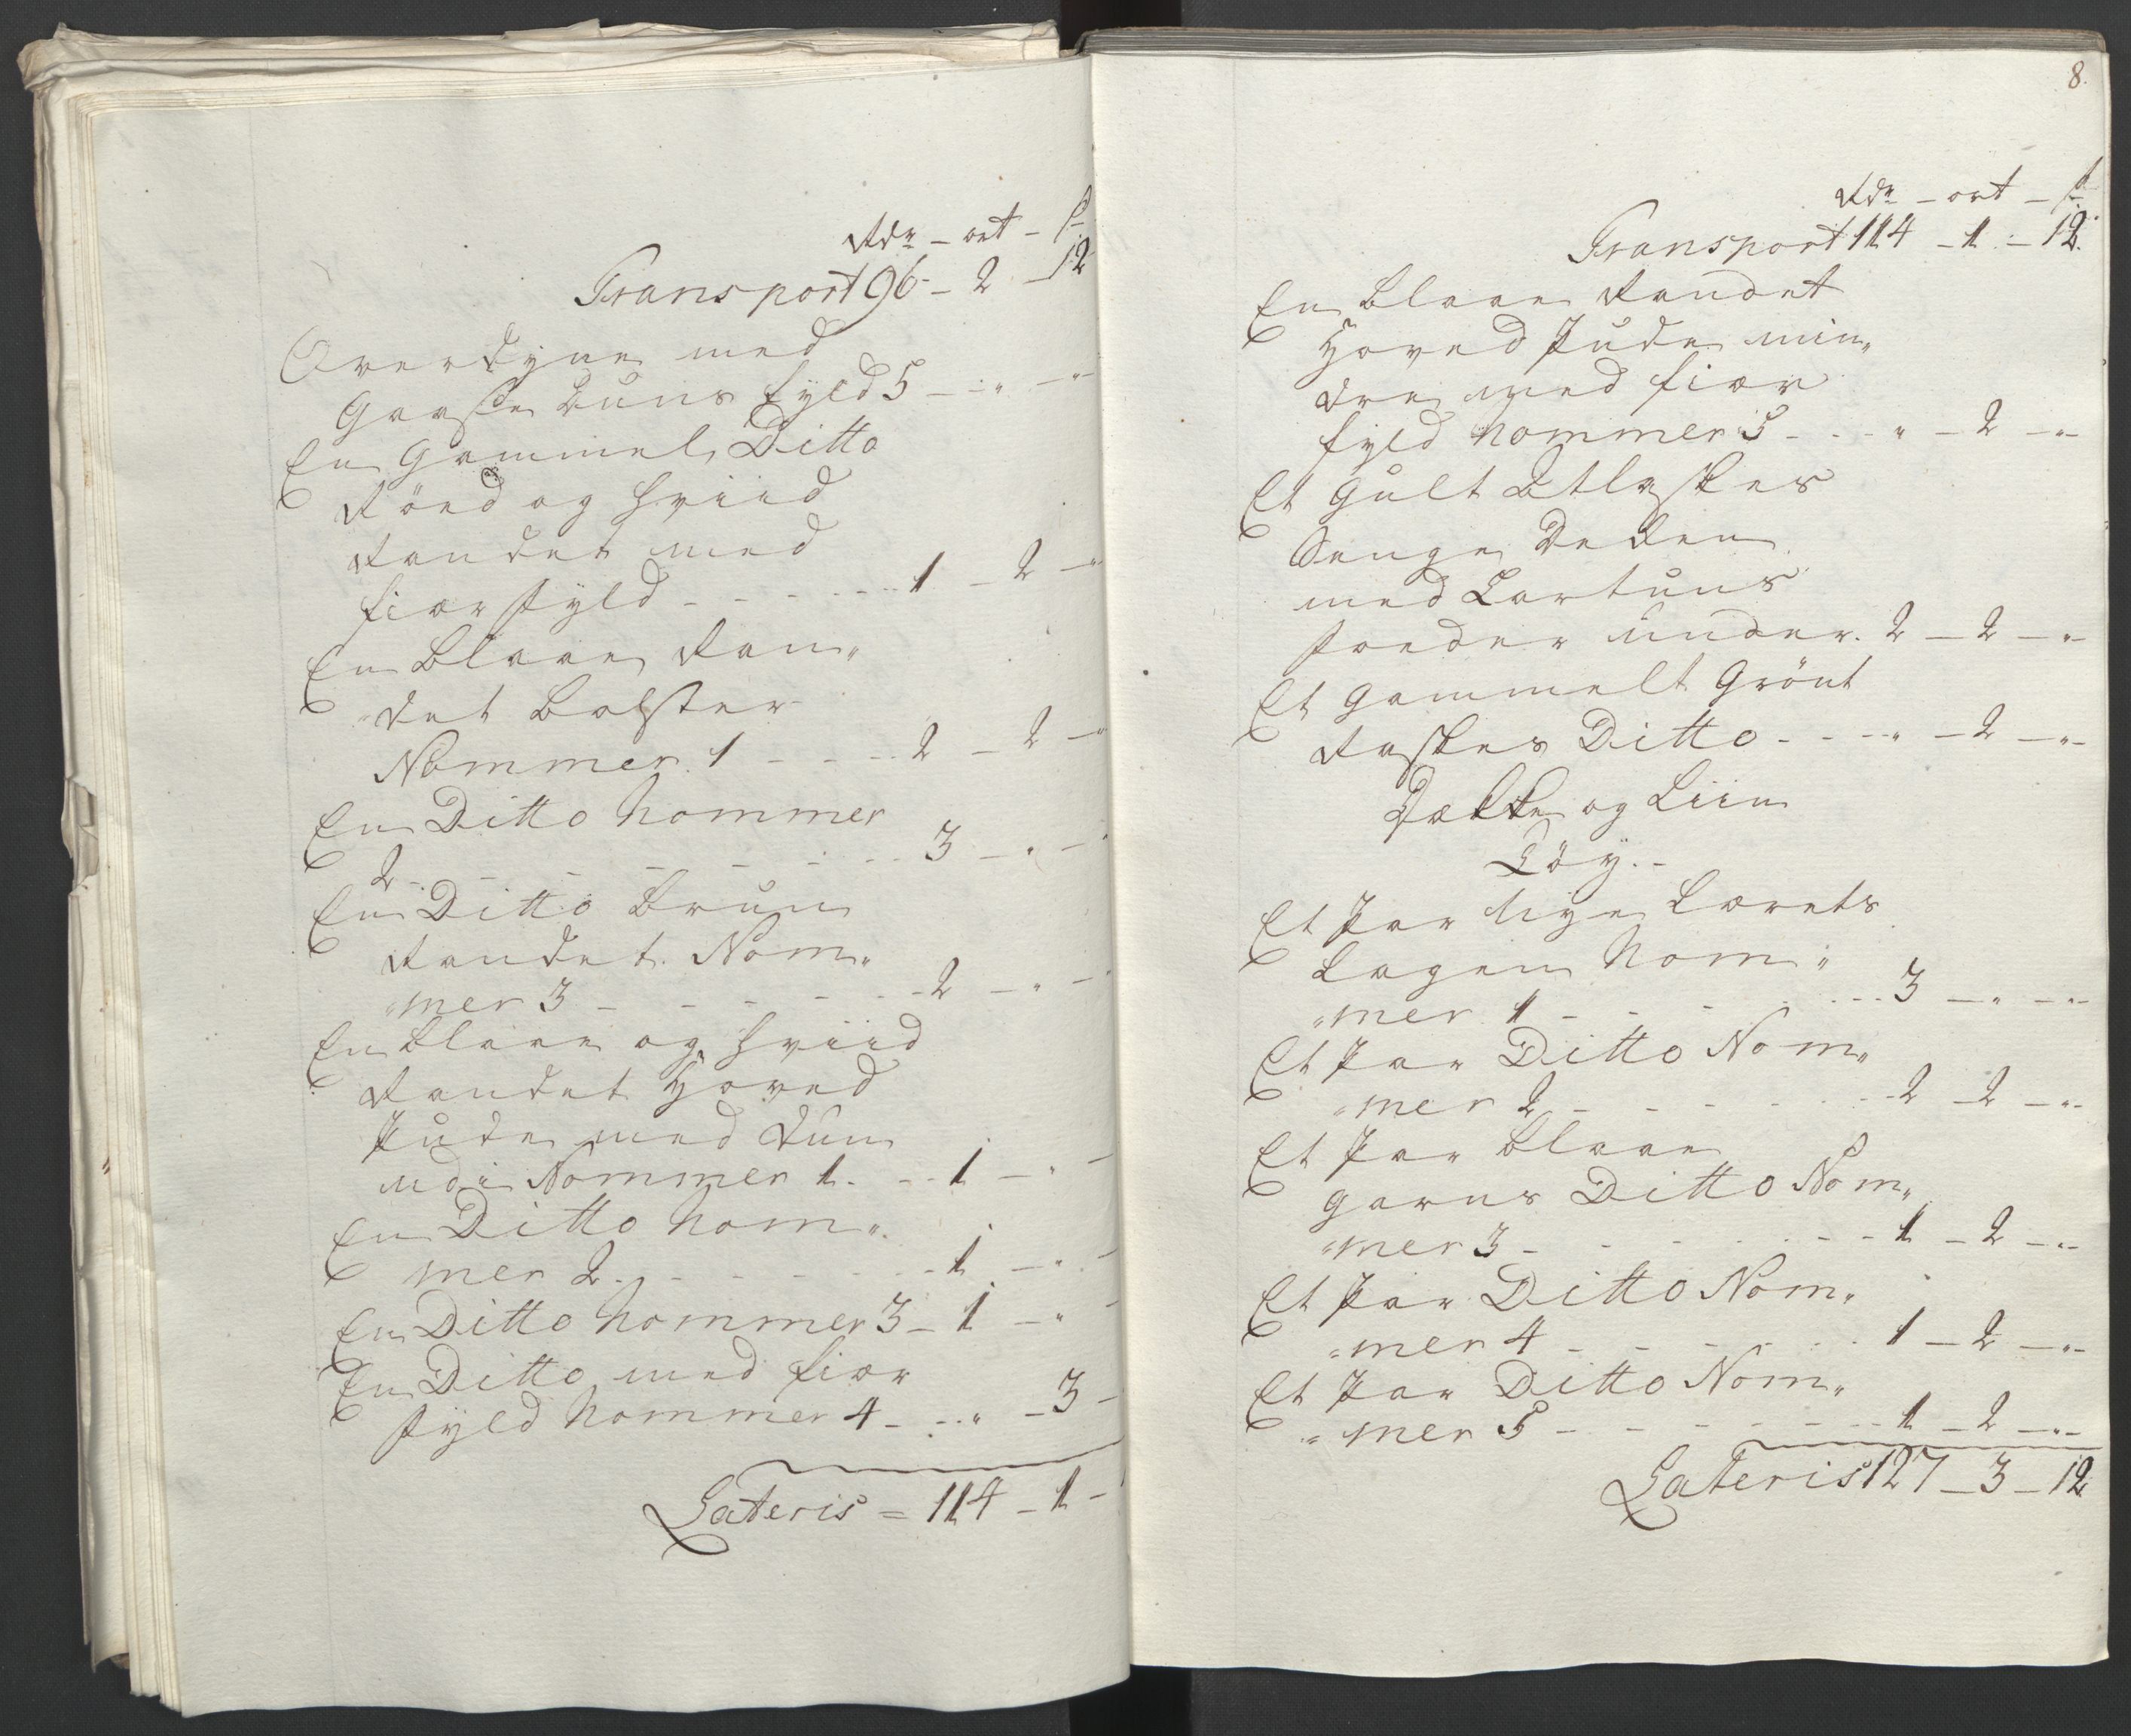 Rdr – ort – ß
Transport 96 – 2 – 12
Overdyne med
Gaasse Duuns fyld 5 – „ – „
En Gammel Ditto
Röed og Hviid
Randet med
fiær fyld – – – – – 1 – 2 – „
En blaae Ran„
„det bolster
Nommer 1 – – – – 2 – 2 – „
En Ditto Nommer
2 – – – – – – 3 – „ –
En Ditto bruun
Randet Nom„
„mer 3 – – – – – – 2 – „ –
En blaae og Hviid
Randet Hoved
Pude med Duun
udi Nommer 1 – – 1 – „ –
En Ditto Nom„
mer 2 – – – – – – 1 – „ –
En Ditto Nommer 3 – 1 – „ –
En Ditto med fiær
fyld Nommer 4 – – „ – 3 –
Lateris = 114 – 1 –
8.
Rdr – ort – ß
Transport 114 – 1 – 12.
En blaae Randet
Hoved Pude min„
dre med fiær
fyld Nommer 5 – – – „ – 2 – „
Et Gult Atlaskes
Senge Decken
med Cartuns
foeder under. 2 – 2 – „
Et Gammelt Grönt
Raskes Ditto – – – „ – 2 – „
Dække og Liin
Töy. –
Et Par Nye Lærets
Lagen Nom„
„mer 1 – – – – – – 3 – „ – „
Et Par Ditto Nom„
„mer 2 – – – – – – 2 – 2 – „
Et Par blaae
garns Ditto Nom„
„mer 3 – – – – – – 1 – 2 – „
Et Par Ditto Nom„
„mer 4 – – – – – – 1 – 2 – „
Et Par Ditto Nom„
„mer 5 – – – – – – 1 – 2 – „
Lateris 127 – 3 – 12